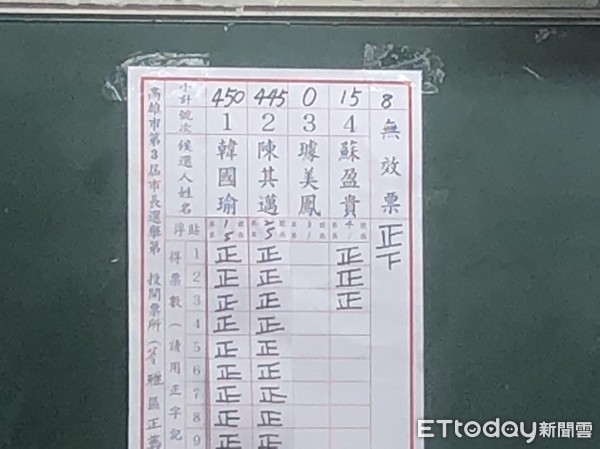 小計 450 445 0 15 8
號次 1 2 3 4 無效票
候選人姓名 韓國瑜 陳其邁 璩美鳳 蘇盈貴
高雄市第3屆市長選舉第 投開票所(苓雅區正
浮貼
得票數(請用正字記
1 正 正 正 正
2 正 正 正 下
3 正 正 正
4 正 正
5 正 正
6 正 正
7 正 正
8 正 正
9 正 正
ETtoday新聞雲